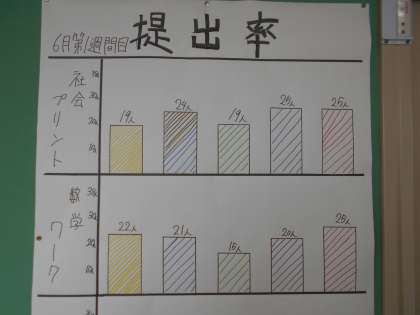 6月第1週間目 提出率
社会プリント
19人 24人 19人 26人 25人
数学ワーク
22人 21人 15人 20人 25人